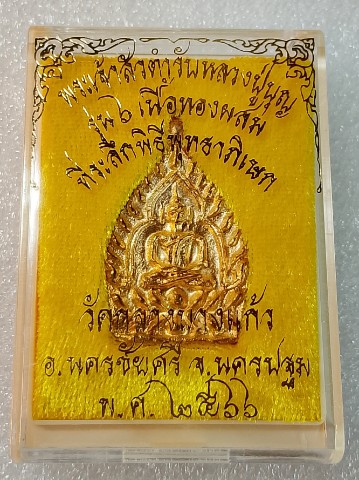 พระเจ้าสัวตำรับหลวงปู่บุญ
รุ่น ๖ เนื้อทองผสม
ที่ระลึกพิธีพุทธาภิเษก
วัดกลางบางแก้ว
อ.นครชัยศรี จ.นครปฐม
พ.ศ.๒๕๖๖